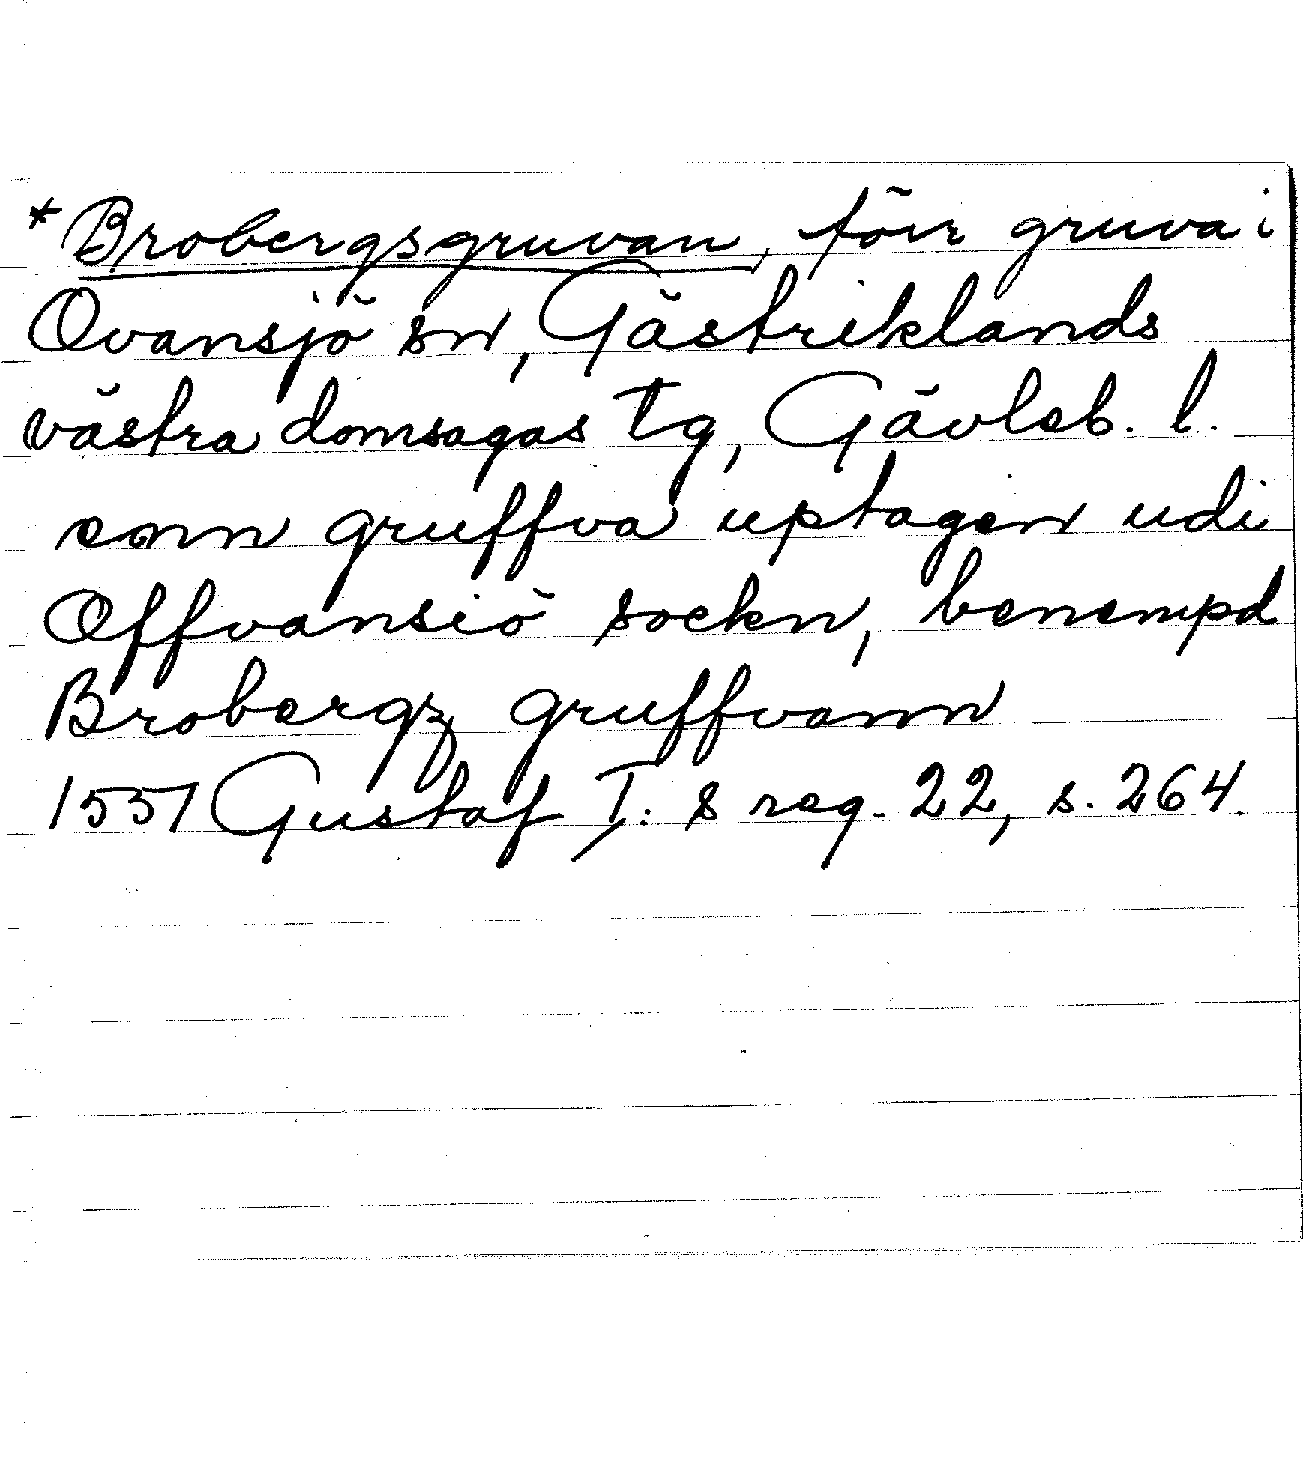 *Brobergsgruvan, förr gruva i
Ovansjö sn, Gästriklands
västra domsagas tg, Gävleb. l.
enn gruffva uptagen udi
Offvansiö sockn, benempd
Brobergz gruffvann
1551 Gustaf I:s reg. 22, s. 264.